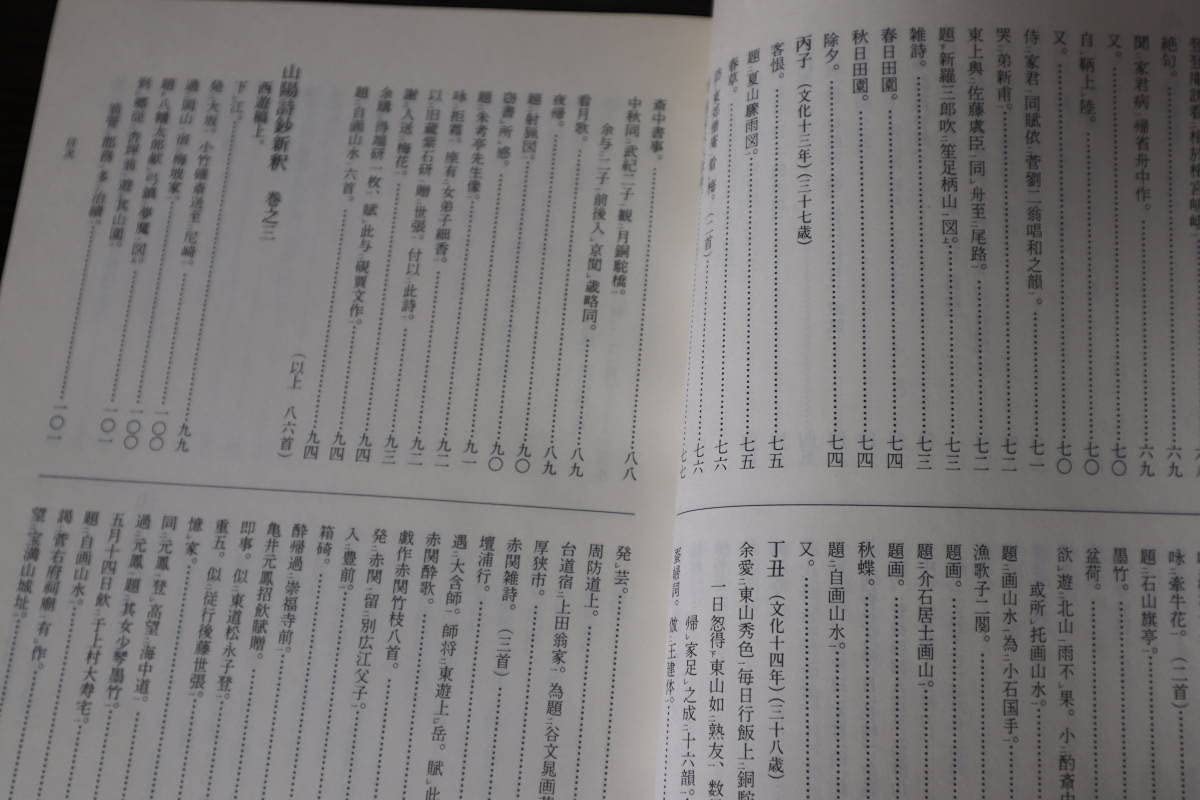 絶句。……六九
聞家君病帰省舟中作。……六九
又。……七〇
自鞆上陸。……七〇
又。……七〇
侍家君同賦依菅劉二翁唱和之韻。……七一
哭弟新甫。……七二
東上与佐藤虞臣同舟至尾路。……七二
題新羅三郎吹笙足柄山図。……七三
雑詩。……七三
春日田園。……七四
秋日田園。……七四
除夕。……七四
丙子(文化十三年)(三十七歳)
客恨。……七五
題夏山驟雨図。……七五
春草。……七六
七六
七七
咏牽牛花。(二首)
題石山旗亭。
墨竹。
盆荷。
欲遊北山雨不果。小酌斎中
或所托画山水。
題画山水為小石国手。
漁歌子二闋。
題画。
題介石居士画山。
題画。
秋蝶。
題自画山水。
又。
丁丑(文化十四年)(三十八歳)
余愛東山秀色毎日行飯上銅駝
一日忽得東山如熟友、数
帰家足之成十六韻。
斎中書事。……八八
中秋同武紀二子観月銅駝橋。
余与二子前後入京聞歳略同。……八八
看月歌。……八九
夜帰。……八九
題射猟図。……九〇
窃書所感。……九〇
題朱考亭先生像。……九一
咏拒霜。座有女弟子細香。……九二
以旧蔵紫石研贈世張。付以此詩。……九二
謝人送梅花。……九三
余購得端研一枚、賦此与硯賈文作。……九四
題自画山水六首。……九四
(以上 八六首)
山陽詩鈔新釈 巻之三
西遊稿上。
下江。……九九
発大坂。小竹確斎送至尼崎。……九九
過岡山宿梅坡家。……一〇〇
一〇〇
一〇一
一〇一
目次
発芸。
周防道上。
台道宿上田翁家。為題谷文晁画
厚狭市。
赤関雑詩。(三首)
壇浦行。
遇大含師。師将東遊上岳。賦此
赤関酔歌。
戯作赤関竹枝八首。
発赤関留別広江父子。
入豊前。
箱碕。
酔帰過崇福寺前。
亀井元鳳招飲賦贈。
即事。似東道松永子登。
重五。似従行後藤世張。
憶家。
同元鳳登高望海中道。
過元鳳題其女少琴墨竹。
五月十四日飲于上村大寿宅。
題自画山水。
謁菅右府祠廟有作。
望宝満山城址。